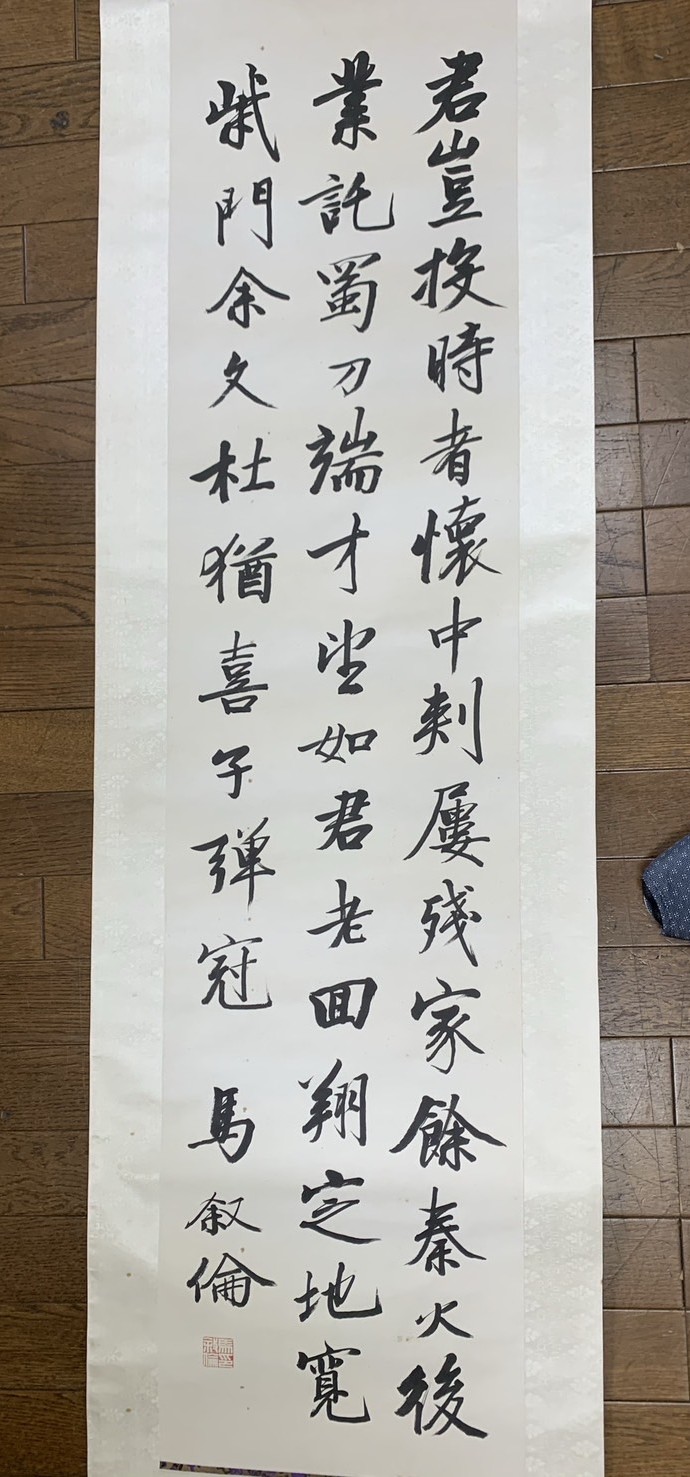 君豈投時者懷中刺屢残家餘秦火後
業託蜀刀端才望如君老回翔定地寬
柴門余久杜猶喜子弾冠 馬叙倫